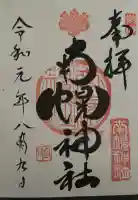 奉拝
南幌神社
令和元年八月九日